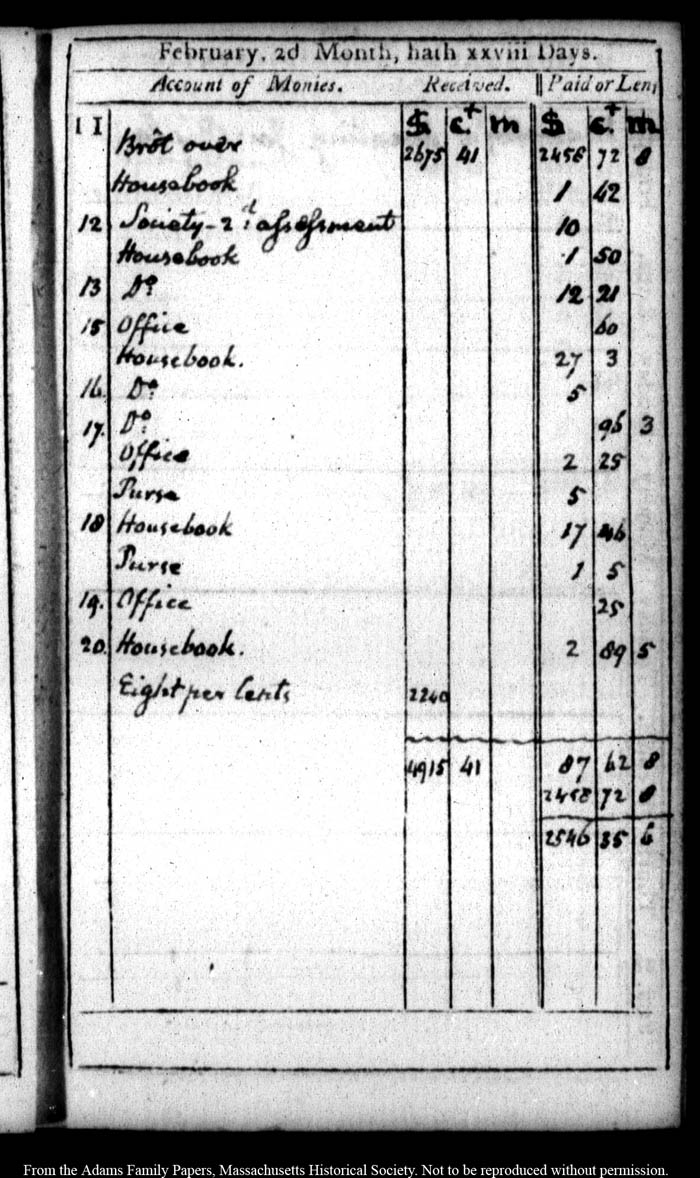 February, 2d Month, hath xxviii Days.
Account of Monies. Received. Paid or Len
11 $ c.t m $ c.t m
Brôt over 2675 41 2458 72 8
Housebook 1 42
12 Society - 2d: assessment 10
Housebook 1 50
13 Do 12 21
15 Office 60
Housebook. 27 3
16. Do 5
17. Do 96 3
Office 2 25
Purse 5
18 Housebook 17 46
Purse 1 5
19. Office 25
20. Housebook. 2 89 5
Eight per Cents 2240
4915 41 87 62 8
2458 72 8
2546 35 6
From the Adams Family Papers, Massachusetts Historical Society. Not to be reproduced without permission.